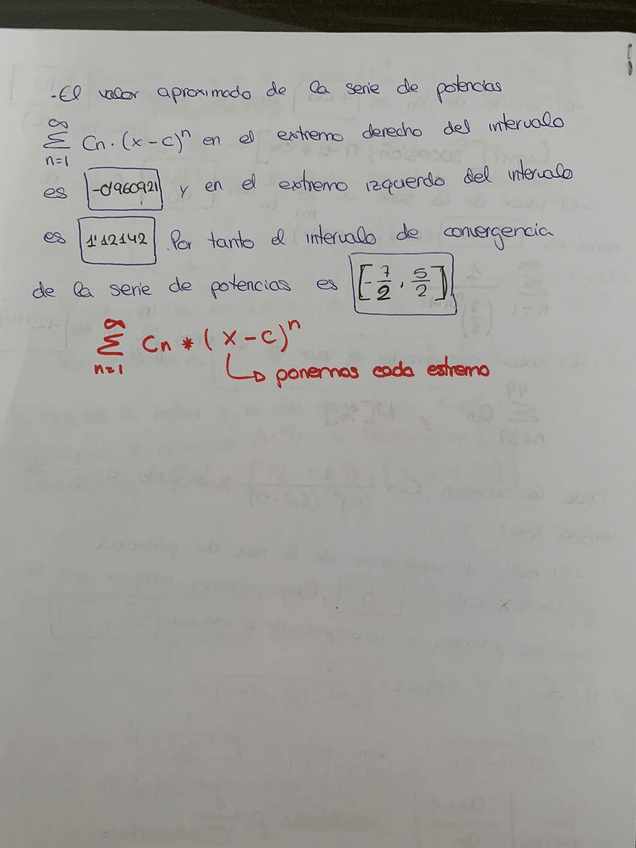 - El valor aproximado de la serie de potencias
∞ Σ n=1 Cn · (x-c)^n en el extremo derecho del intervalo
es -0'960921 y en el extremo izquerdo del intervalo
es 1'12142. Por tanto el intervalo de convergencia
de la serie de potencias es [-7/2, 5/2]
∞ Σ n=1 Cn * (x-c)^n
ponemos cada estremo